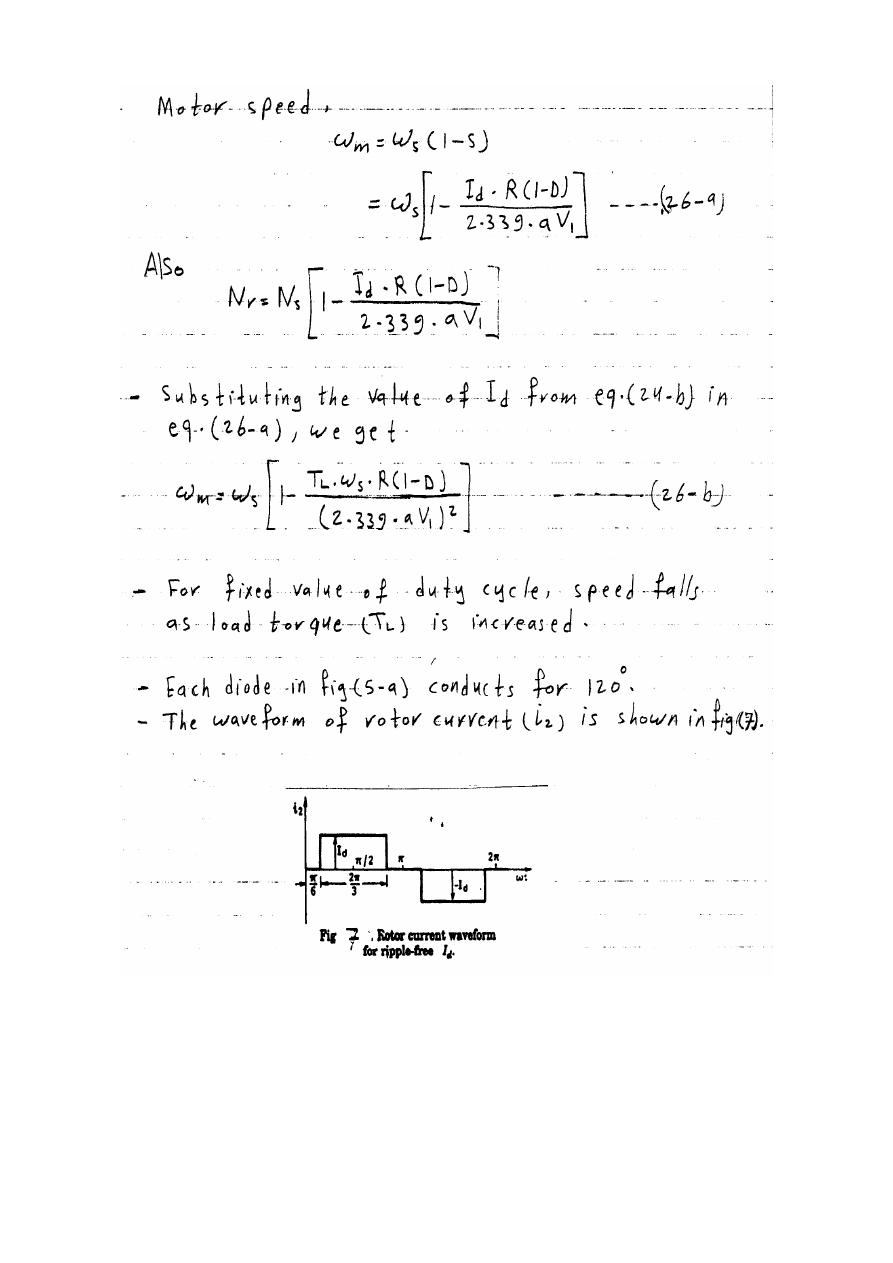 Motor speed,
ωm = ωs (1-S)
= ωs [1 - Id . R (1-D) / 2.339 . a V1] ----(26-a)
Also
Nr = Ns [1 - Id . R (1-D) / 2.339 . a V1]
- Substituting the value of Id from eq.(24-b) in
eq.(26-a), we get
ωm = ωs [1 - TL . ωs . R(1-D) / (2.339 . a V1)²] -------(26-b)
- For fixed value of duty cycle, speed falls
as load torque (TL) is increased.
- Each diode in fig(5-a) conducts for 120°.
- The waveform of rotor current (i2) is shown in fig(7).
i2
Id
π/2 π 2π
π/6 2π/3 -Id ωt
Fig 7 . Rotor current waveform
for ripple-free Id.